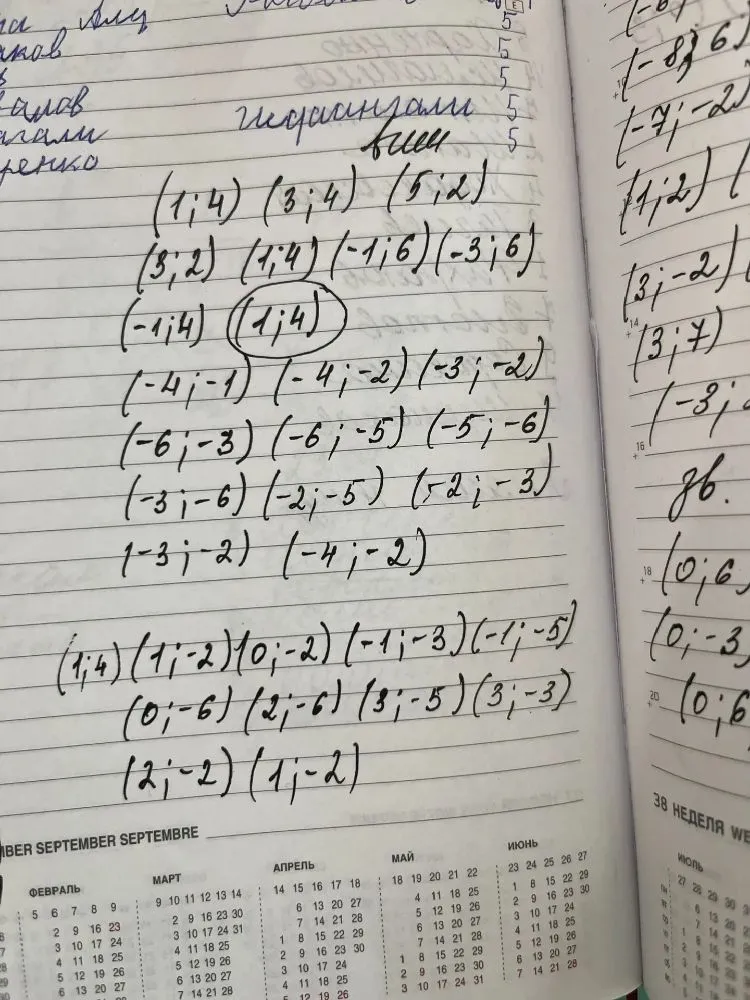 5
аков 5
5
аров 5
гали жданнгали 5
ренко вши 5
(1;4) (3;4) (5;2)
(3;2) (1;4) (-1;6) (-3;6)
(-1;4) (1;4)
(-4;-1) (-4;-2) (-3;-2)
(-6;-3) (-6;-5) (-5;-6)
(-3;-6) (-2;-5) (-2;-3)
(-3;-2) (-4;-2)
(1;4) (1;-2) (0;-2) (-1;-3) (-1;-5)
(0;-6) (2;-6) (3;-5) (3;-3)
(2;-2) (1;-2)
MBER SEPTEMBER SEPTEMBRE
ФЕВРАЛЬ МАРТ АПРЕЛЬ МАЙ ИЮНЬ
5 6 7 8 9 9 10 11 12 13 14 14 15 16 17 18 18 19 20 21 22 23 24 25 26 27
2 9 16 23 2 9 16 23 30 6 13 20 27 4 11 18 25 1 8 15 22 29
3 10 17 24 3 10 17 24 31 7 14 21 28 5 12 19 26 2 9 16 23 30
4 11 18 25 4 11 18 25 1 8 15 22 29 6 13 20 27 3 10 17 24
5 12 19 26 5 12 19 26 2 9 16 23 30 7 14 21 28 4 11 18 25
6 13 20 27 6 13 20 27 3 10 17 24 1 8 15 22 29 5 12 19 26
7 14 21 28 4 11 18 25 2 9 16 23 30 6 13 20 27
5 12 19 26 3 10 17 24 31 7 14 21 28
(-8; 6)
(-7; -2)
(1;2) (
(3;-2)
14
(3;7)
(-3;
16
зв.
18
(0;6
(0;-3
20
(0;6
38 НЕДЕЛЯ WE
ИЮЛЬ
27 28 29 30